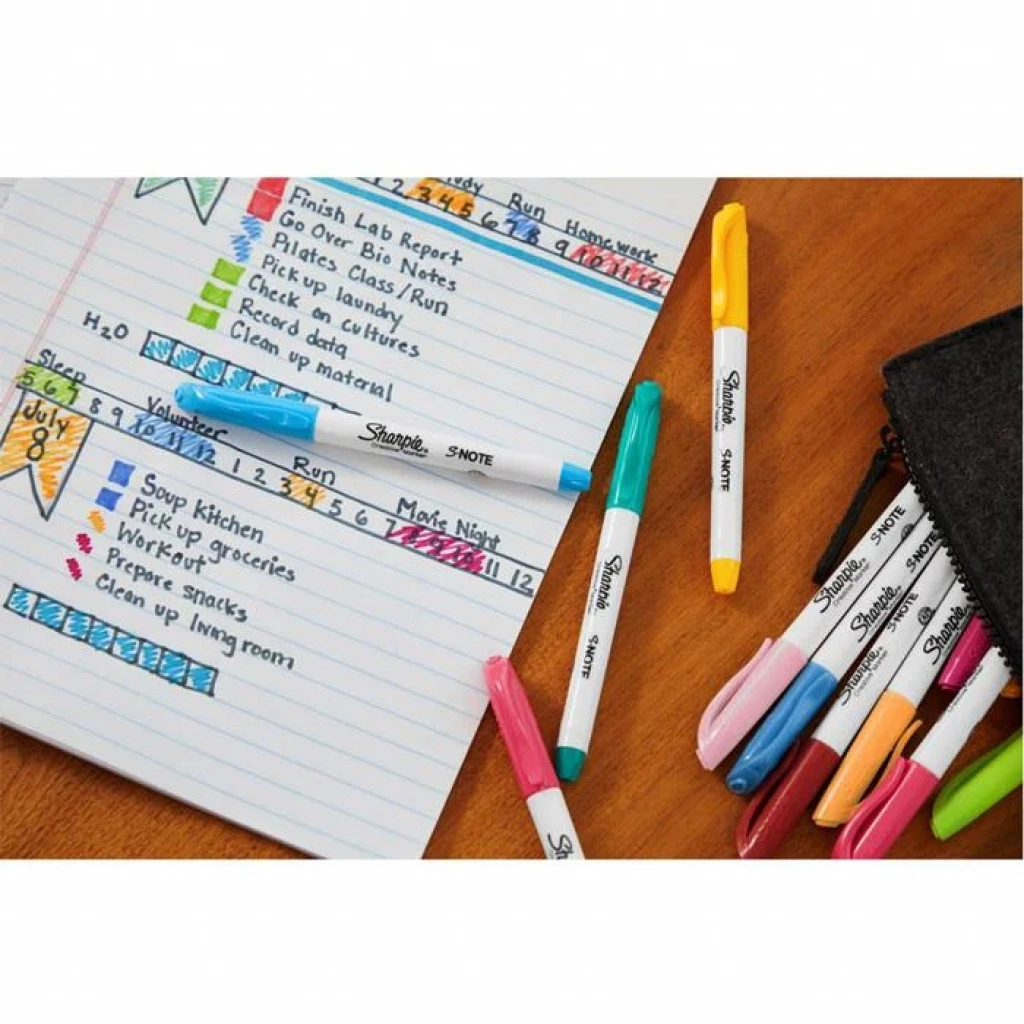 Run Homework
1 2 3 4 5 6 7 8 9 10 11 12
Finish Lab Report
Go Over Bio Notes
Pilates Class/Run
Pick up laundry
Check on cultures
Record data
Clean up material
H2O
Sleep Volunteer Run Movie Night
5 6 7 8 9 10 11 12 1 2 3 4 5 6 7 8 9 10 11 12
July
8
Soup kitchen
Pick up groceries
Workout
Prepare snacks
Clean up living room
Sharpie S·NOTE
Creative Marker
Sharpie S·NOTE
Creative Marker
Sharpie S·NOTE
Creative Marker
Sharpie S·NOTE
Creative Marker
Sharpie S·NOTE
Sharpie S·NOTE
Creative Marker
Sharpie